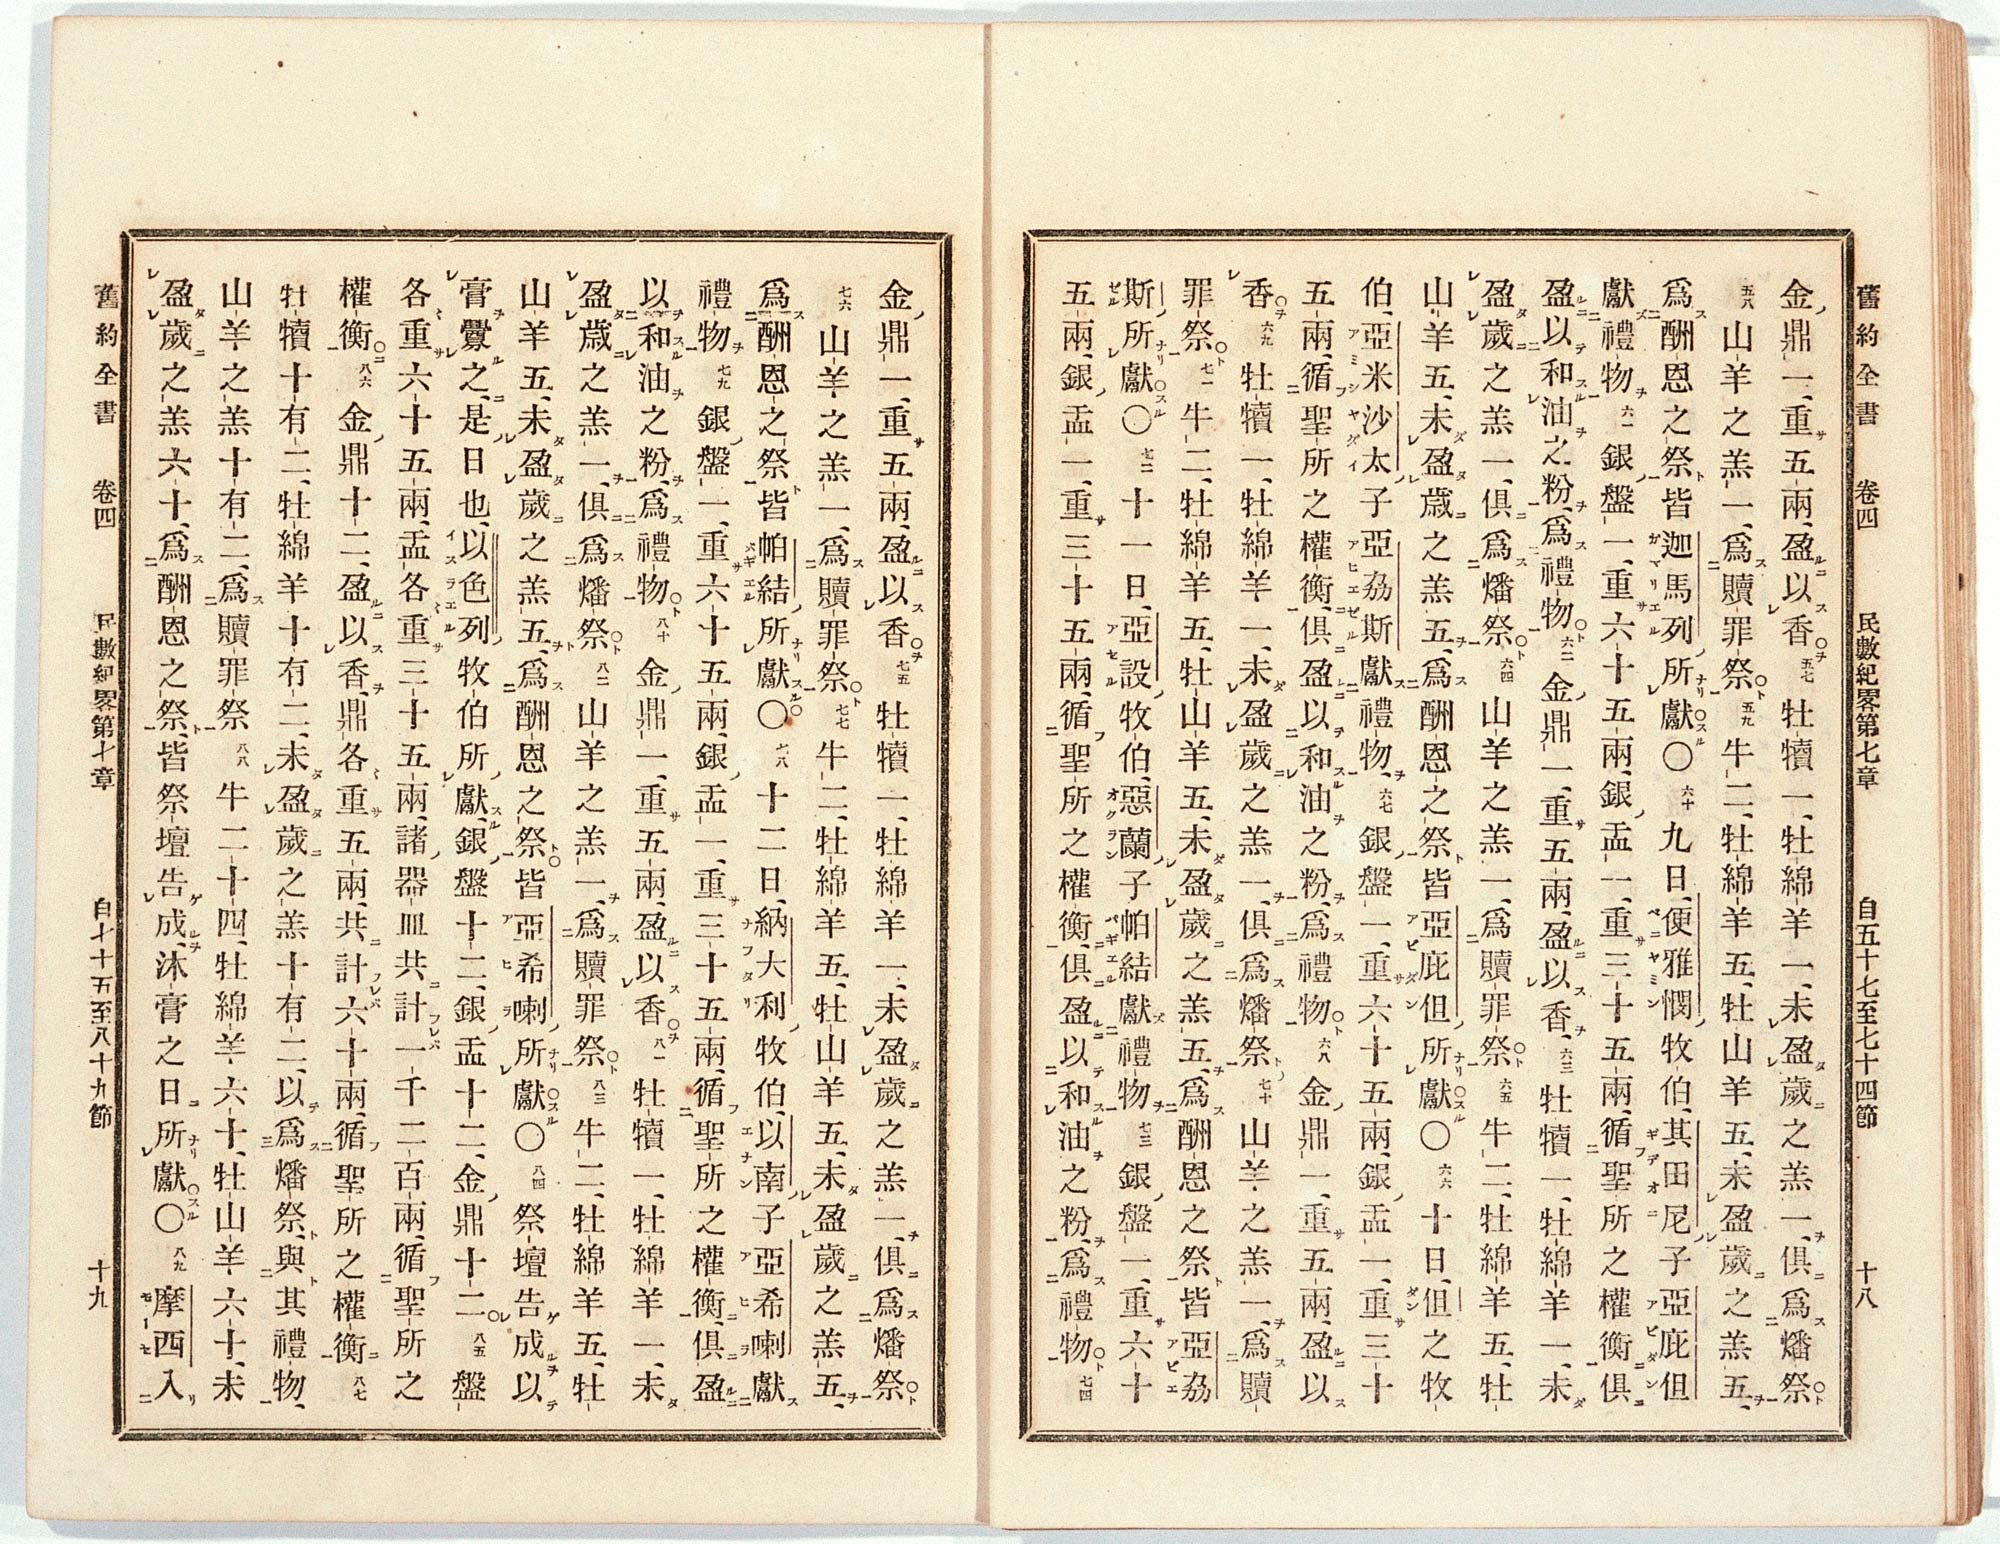 舊約全書 卷四 民數紀畧第七章 自五十七至七十四節 十八
金鼎一、重五兩、盈以香 五七 牡犢一、牡綿羊一、未盈歲之羔一、俱爲燔祭
五八 山羊之羔一、爲贖罪祭 五九 牛二、牡綿羊五、牡山羊五、未盈歲之羔五、
爲酬恩之祭、皆迦馬列所獻〇 六十 九日、便雅憫牧伯、其田尼子亞庇但
獻禮物 六一 銀盤一、重六十五兩、銀盂一、重三十五兩、循聖所之權衡、俱
盈以和油之粉、爲禮物 六二 金鼎一、重五兩、盈以香、六三 牡犢一、牡綿羊一、未
盈歲之羔一、俱爲燔祭 六四 山羊之羔一、爲贖罪祭 六五 牛二、牡綿羊五、牡
山羊五、未盈歲之羔五、爲酬恩之祭、皆亞庇但所獻〇 六六 十日、但之牧
伯、亞米沙太子亞希斯獻禮物、六七 銀盤一、重六十五兩、銀盂一、重三十
五兩、循聖所之權衡、俱盈以和油之粉、爲禮物 六八 金鼎一、重五兩、盈以
香 六九 牡犢一、牡綿羊一、未盈歲之羔一、俱爲燔祭 七十 山羊之羔一、爲贖
罪祭 七一 牛二、牡綿羊五、牡山羊五、未盈歲之羔五、爲酬恩之祭、皆亞
斯所獻〇 七二 十一日、亞設牧伯、惡蘭子帕結獻禮物 七三 銀盤一、重六十
五兩、銀盂一、重三十五兩、循聖所之權衡、俱盈以和油之粉、爲禮物 七四
金鼎一、重五兩、盈以香 七五 牡犢一、牡綿羊一、未盈歲之羔一、俱爲燔祭
七六 山羊之羔一、爲贖罪祭 七七 牛二、牡綿羊五、牡山羊五、未盈歲之羔五、
爲酬恩之祭、皆帕結所獻〇 七八 十二日、納大利牧伯、以南子亞希喇獻
禮物 七九 銀盤一、重六十五兩、銀盂一、重三十五兩、循聖所之權衡、俱盈
以和油之粉、爲禮物 八十 金鼎一、重五兩、盈以香 八一 牡犢一、牡綿羊一、未
盈歲之羔一、俱爲燔祭 八二 山羊之羔一、爲贖罪祭 八三 牛二、牡綿羊五、牡
山羊五、未盈歲之羔五、爲酬恩之祭、皆亞希喇所獻〇 八四 祭壇告成、以
膏釁之、是日也、以色列牧伯所獻、銀盤十二、銀盂十二、金鼎十二 八五 盤
各重六十五兩、盂各重三十五兩、諸器皿共計一千二百兩、循聖所之
權衡 八六 金鼎十二、盈以香、鼎各重五兩、共計六十兩、循聖所之權衡 八七
牡犢十有二、牡綿羊十有二、未盈歲之羔十有二、以爲燔祭、與其禮物、
山羊之羔十有二、爲贖罪祭 八八 牛二十四、牡綿羊六十、牡山羊六十、未
盈歲之羔六十、爲酬恩之祭、皆祭壇告成、沐膏之日所獻〇 八九 摩西入
舊約全書 卷四 民數紀畧第七章 自七十五至八十九節 十九